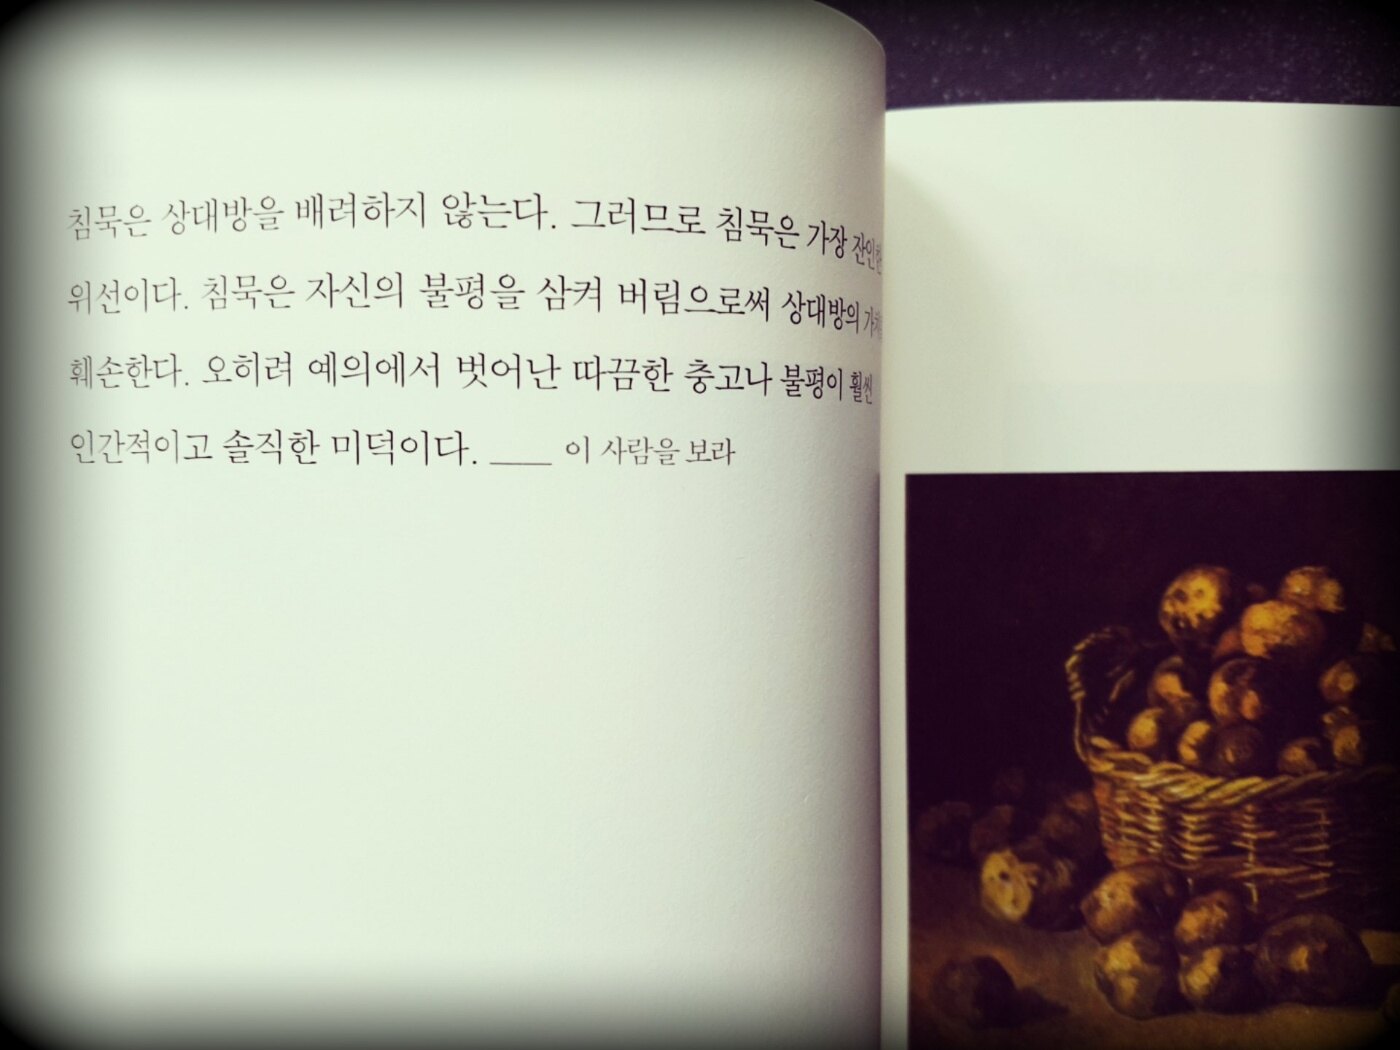 침묵은 상대방을 배려하지 않는다. 그러므로 침묵은 가장 잔인한
위선이다. 침묵은 자신의 불평을 삼켜 버림으로써 상대방의
훼손한다. 오히려 예의에서 벗어난 따끔한 충고나 불평이 훨씬
인간적이고 솔직한 미덕이다. ____ 이 사람을 보라